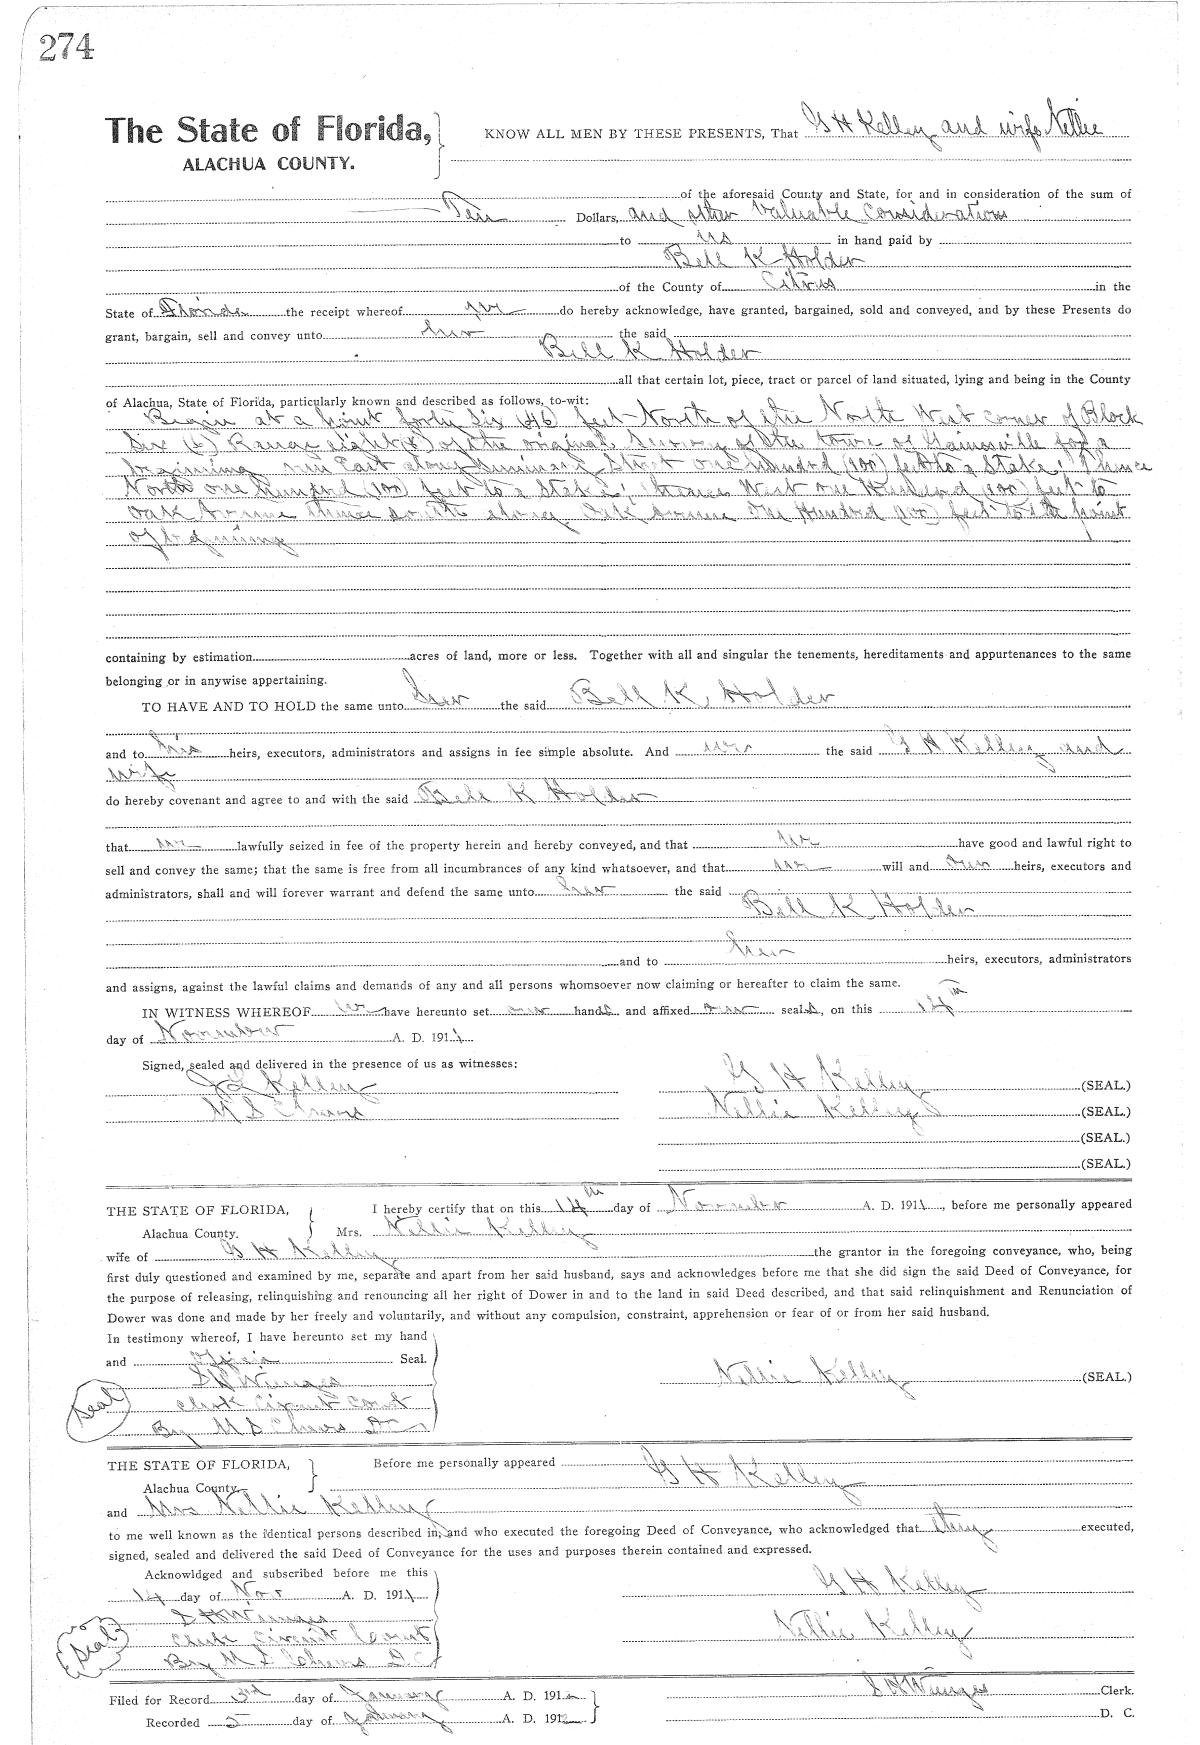 274
The State of Florida,
ALACHUA COUNTY.
KNOW ALL MEN BY THESE PRESENTS, That G H Kelley and wife Nellie
of the aforesaid County and State, for and in consideration of the sum of
Ten Dollars, and other Valuable Considerations
to us in hand paid by
Bell K Holder
of the County of Citrus in the
State of Florida the receipt whereof we do hereby acknowledge, have granted, bargained, sold and conveyed, and by these Presents do
grant, bargain, sell and convey unto the said
Bell K Holder
all that certain lot, piece, tract or parcel of land situated, lying and being in the County
of Alachua, State of Florida, particularly known and described as follows, to-wit:
Begin at a point forty six (46) feet North of the North West corner of Block
Six (6) Range eight (8) of the original Survey of the town of Gainesville for a
beginning run East along Street one hundred (100) feet to a Stake; Thence
North one hundred (100) feet to a Stake; thence West one Hundred (100) feet to
Oak Avenue thence south along Oak Avenue One Hundred (100) feet to the point
of beginning
containing by estimation acres of land, more or less. Together with all and singular the tenements, hereditaments and appurtenances to the same
belonging or in anywise appertaining.
TO HAVE AND TO HOLD the same unto the said Bell K. Holder
and to his heirs, executors, administrators and assigns in fee simple absolute. And we the said G H Kelley and
wife
do hereby covenant and agree to and with the said Bell K Holder
that we lawfully seized in fee of the property herein and hereby conveyed, and that we have good and lawful right to
sell and convey the same; that the same is free from all incumbrances of any kind whatsoever, and that we will and our heirs, executors and
administrators, shall and will forever warrant and defend the same unto the said
Bell K Holder
and to heirs, executors, administrators
and assigns, against the lawful claims and demands of any and all persons whomsoever now claiming or hereafter to claim the same.
IN WITNESS WHEREOF We have hereunto set our hands and affixed our seals, on this 14th
day of November A. D. 1911
Signed, sealed and delivered in the presence of us as witnesses:
Kelley G H Kelley (SEAL.)
M S Cheves Nellie Kelley (SEAL.)
(SEAL.)
(SEAL.)
THE STATE OF FLORIDA, I hereby certify that on this 14th day of November A. D. 1911, before me personally appeared
Alachua County. Mrs. Nellie Kelley
wife of G H Kelley the grantor in the foregoing conveyance, who, being
first duly questioned and examined by me, separate and apart from her said husband, says and acknowledges before me that she did sign the said Deed of Conveyance, for
the purpose of releasing, relinquishing and renouncing all her right of Dower in and to the land in said Deed described, and that said relinquishment and Renunciation of
Dower was done and made by her freely and voluntarily, and without any compulsion, constraint, apprehension or fear of or from her said husband.
In testimony whereof, I have hereunto set my hand
and Seal.
S H Wienges Nellie Kelley (SEAL.)
Seal clerk circuit court
By M S Cheves D C
THE STATE OF FLORIDA, Before me personally appeared G H Kelley
Alachua County.
and Mrs Nellie Kelley
to me well known as the identical persons described in, and who executed the foregoing Deed of Conveyance, who acknowledged that they executed,
signed, sealed and delivered the said Deed of Conveyance for the uses and purposes therein contained and expressed.
Acknowldged and subscribed before me this
14 day of Nov A. D. 1911 G H Kelley
S H Wienges
Seal clerk circuit Court Nellie Kelley
By M S Cheves D. C.
Filed for Record 3rd day of January A. D. 1912 S H Wienges Clerk.
Recorded 5 day of January A. D. 1912 D. C.